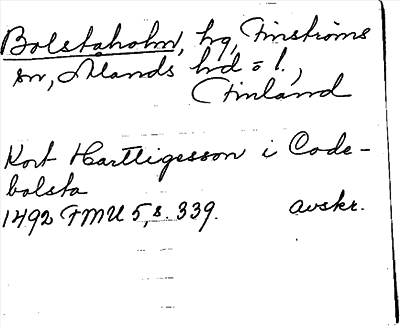 Bolstaholm, hg, Finströms
sn, Ålands hd = l.,
Finland
Kort Hartligesson i Code-
bolsta
1492 FMU 5, s. 339. avskr.